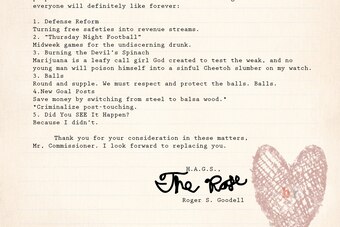 everyone will definitely like forever:
1. Defense Reform
Turning free safeties into revenue streams.
2. "Thursday Night Football"
Midweek games for the undiscerning drunk.
3. Burning the Devil's Spinach
Marijuana is a leafy call girl God created to test the weak, and no
young man will poison himself into a sinful Cheetoh slumber on my watch.
3. Balls
Round and supple. We must respect and protect the balls. Balls.
4.New Goal Posts
Save money by switching from steel to balsa wood."
"Criminalize post-touching.
5. Did You SEE It Happen?
Because I didn't.
Thank you for your consideration in these matters,
Mr. Commissioner. I look forward to replacing you.
H.A.G.S.,
The Rose
Roger S. Goodell